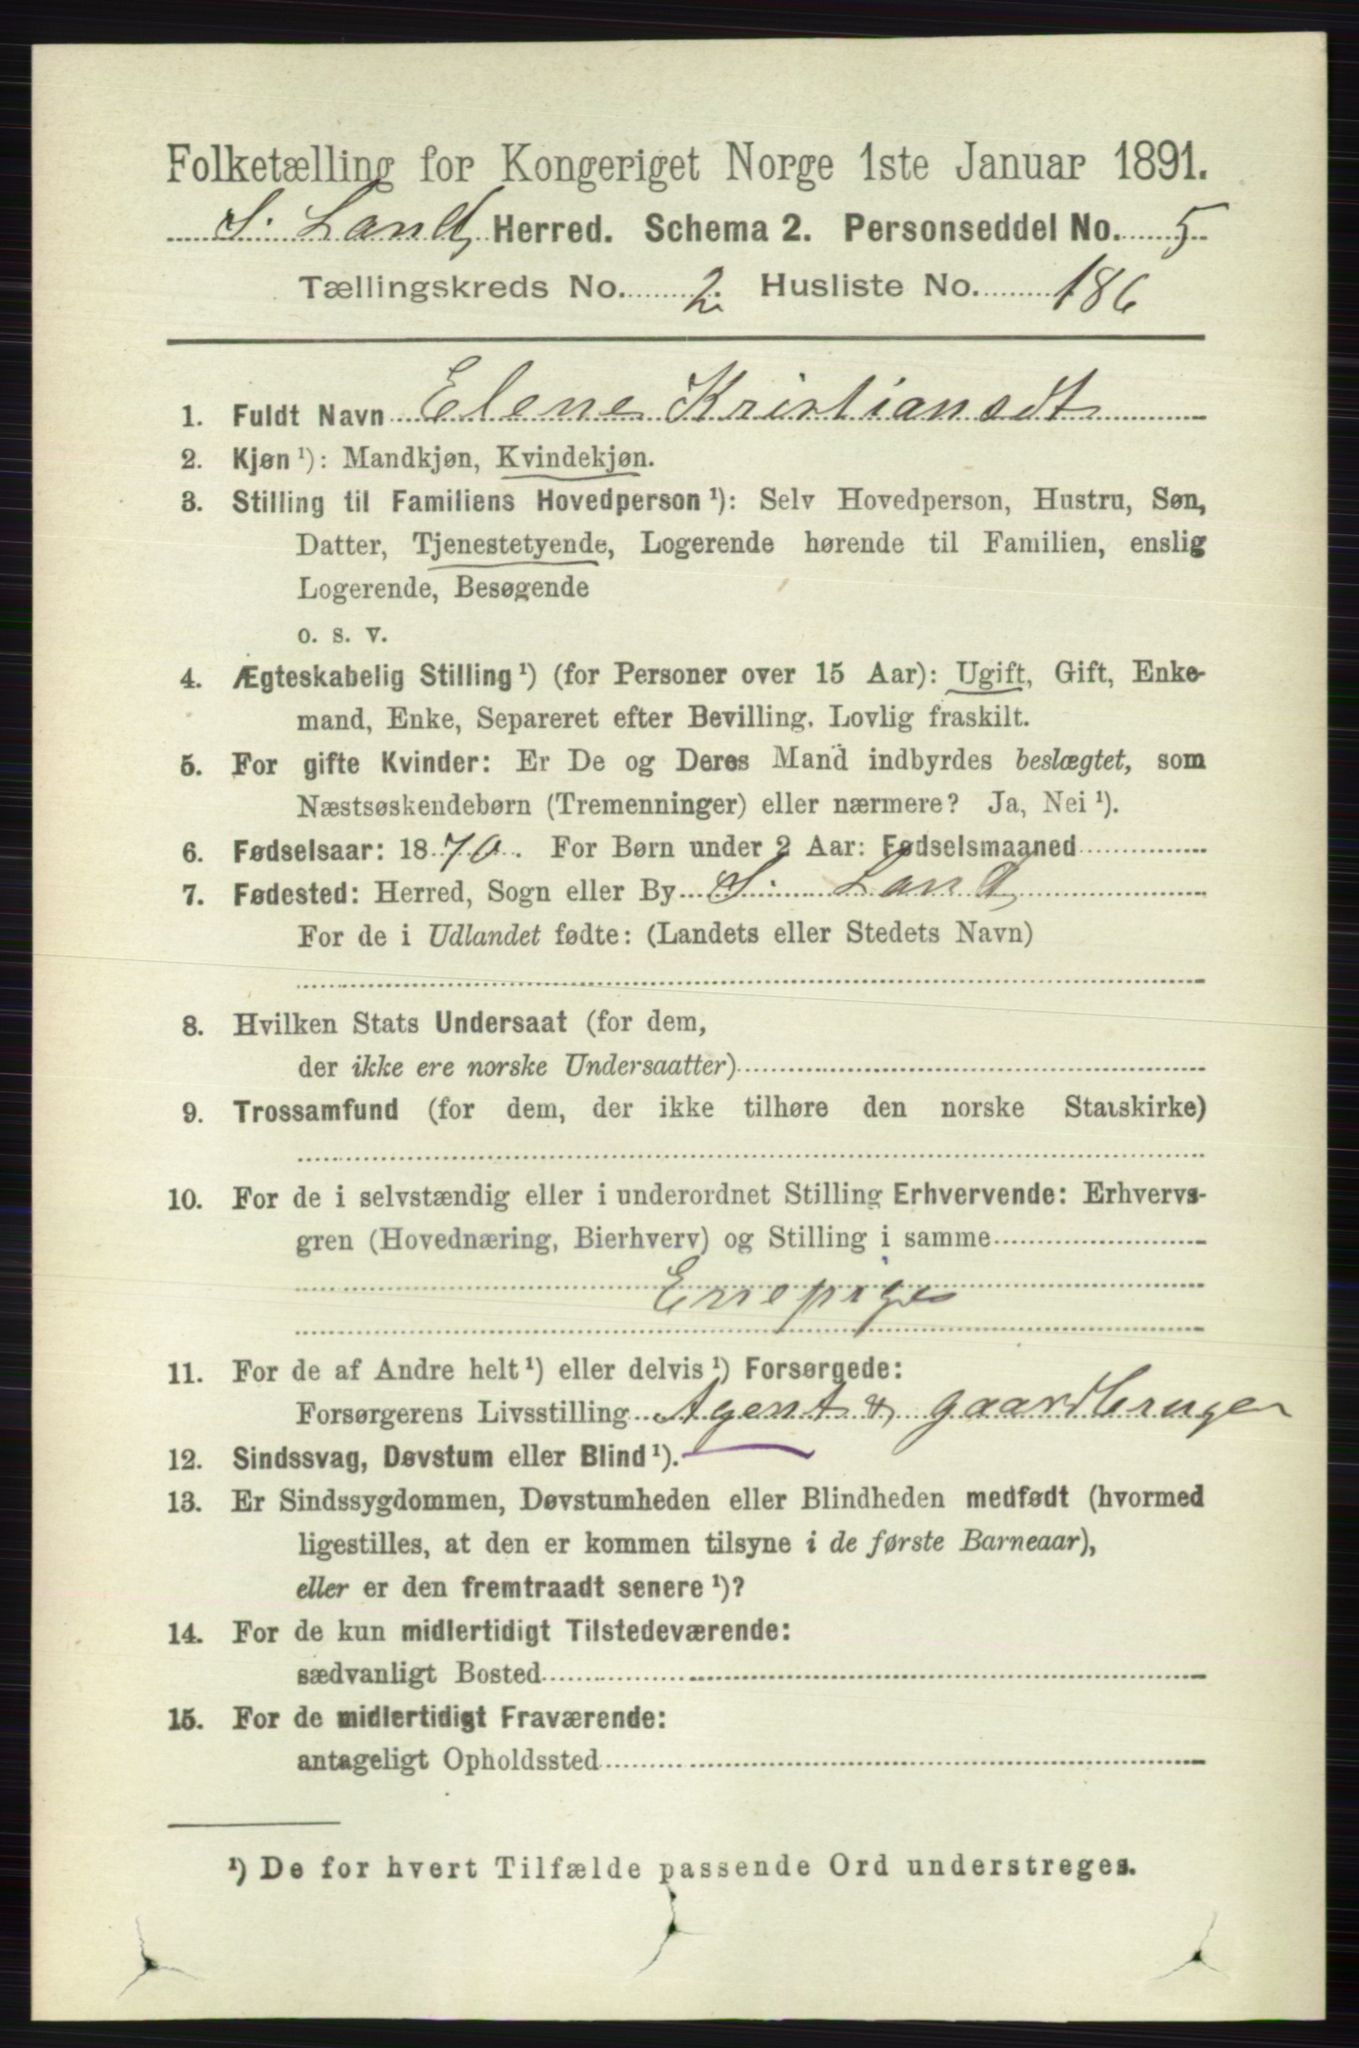 Folketælling for Kongeriget Norge 1ste Januar 1891.
S. Land Herred. Schema 2. Personseddel No. 5
Tællingskreds No. 2. Husliste No. 186
1. Fuldt Navn Elene Kristiansdt
2. Kjøn ¹): Mandkjøn, Kvindekjøn.
3. Stilling til Familiens Hovedperson ¹): Selv Hovedperson, Hustru, Søn,
Datter, Tjenestetyende, Logerende hørende til Familien, enslig
Logerende, Besøgende
o. s. v.
4. Ægteskabelig Stilling ¹) (for Personer over 15 Aar): Ugift, Gift, Enke-
mand, Enke, Separeret efter Bevilling. Lovlig fraskilt.
5. For gifte Kvinder: Er De og Deres Mand indbyrdes beslægtet, som
Næstsøskendebørn (Tremenninger) eller nærmere? Ja, Nei ¹).
6. Fødselsaar: 1870. For Børn under 2 Aar: Fødselsmaaned
7. Fødested: Herred, Sogn eller By S. Land
For de i Udlandet fødte: (Landets eller Stedets Navn)
8. Hvilken Stats Undersaat (for dem,
der ikke ere norske Undersaatter)
9. Trossamfund (for dem, der ikke tilhøre den norske Statskirke)
10. For de i selvstændig eller i underordnet Stilling Erhvervende: Erhvervs-
gren (Hovednæring, Bierhverv) og Stilling i samme
pige
11. For de af Andre helt ¹) eller delvis ¹) Forsørgede:
Forsørgerens Livsstilling Agent & gaardbruger
12. Sindssvag, Døvstum eller Blind ¹).
13. Er Sindssygdommen, Døvstumheden eller Blindheden medfødt (hvormed
ligestilles, at den er kommen tilsyne i de første Barneaar),
eller er den fremtraadt senere ¹)?
14. For de kun midlertidigt Tilstedeværende:
sædvanligt Bosted
15. For de midlertidigt Fraværende:
antageligt Opholdssted
¹) De for hvert Tilfælde passende Ord understreges.